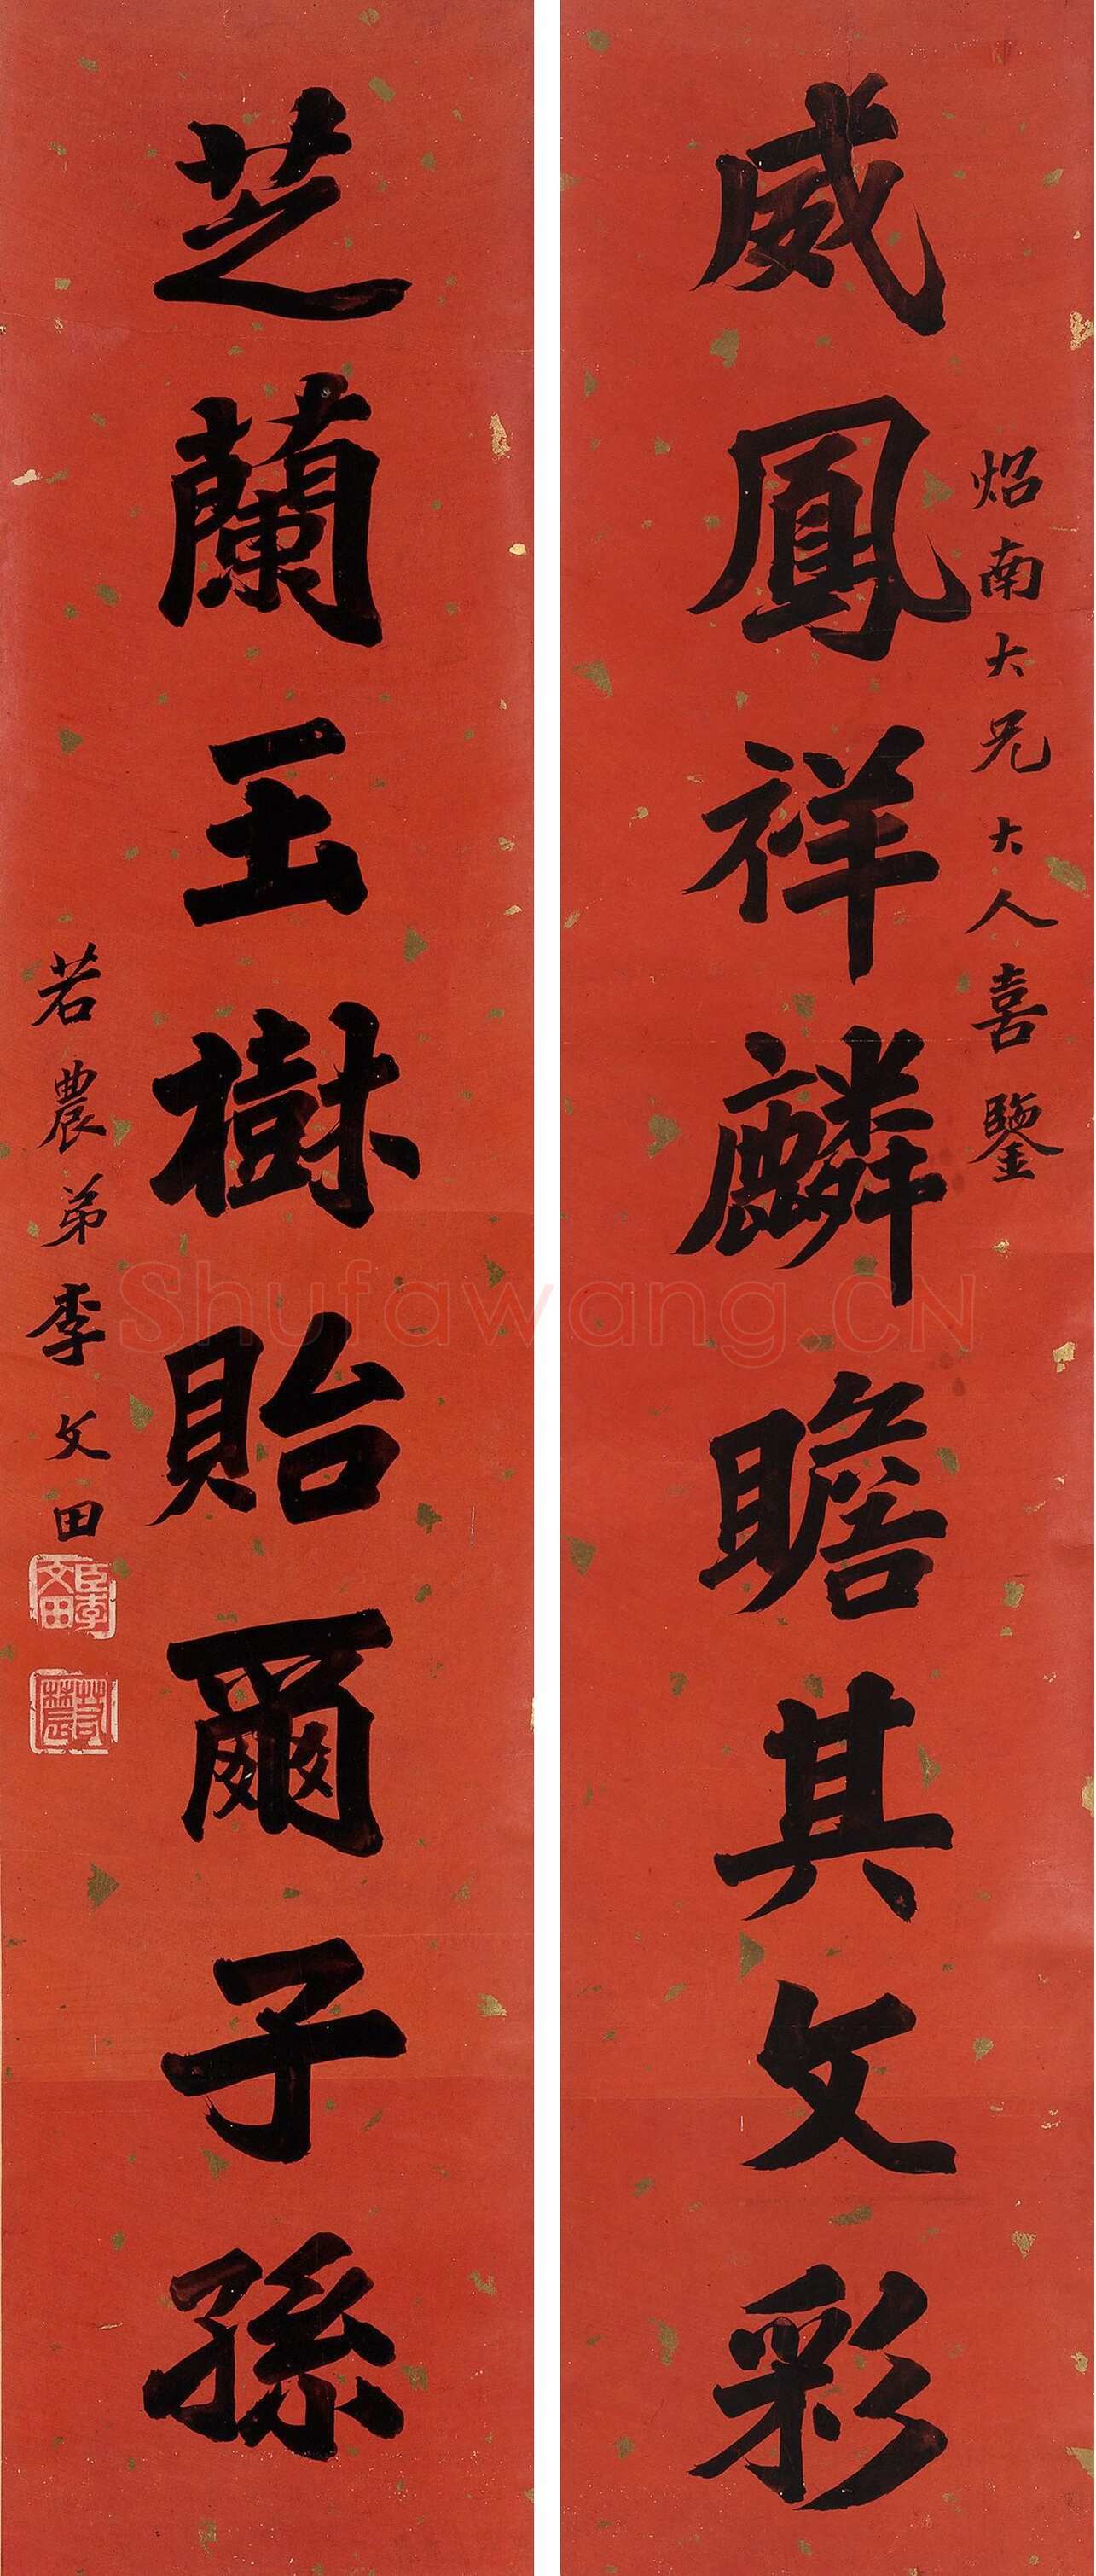 炤南大兄大人喜鑒
威鳳祥麟瞻其文彩
芝蘭玉樹貽爾子孫
若農弟李文田
臣李文田
若農
Shufawang.CN